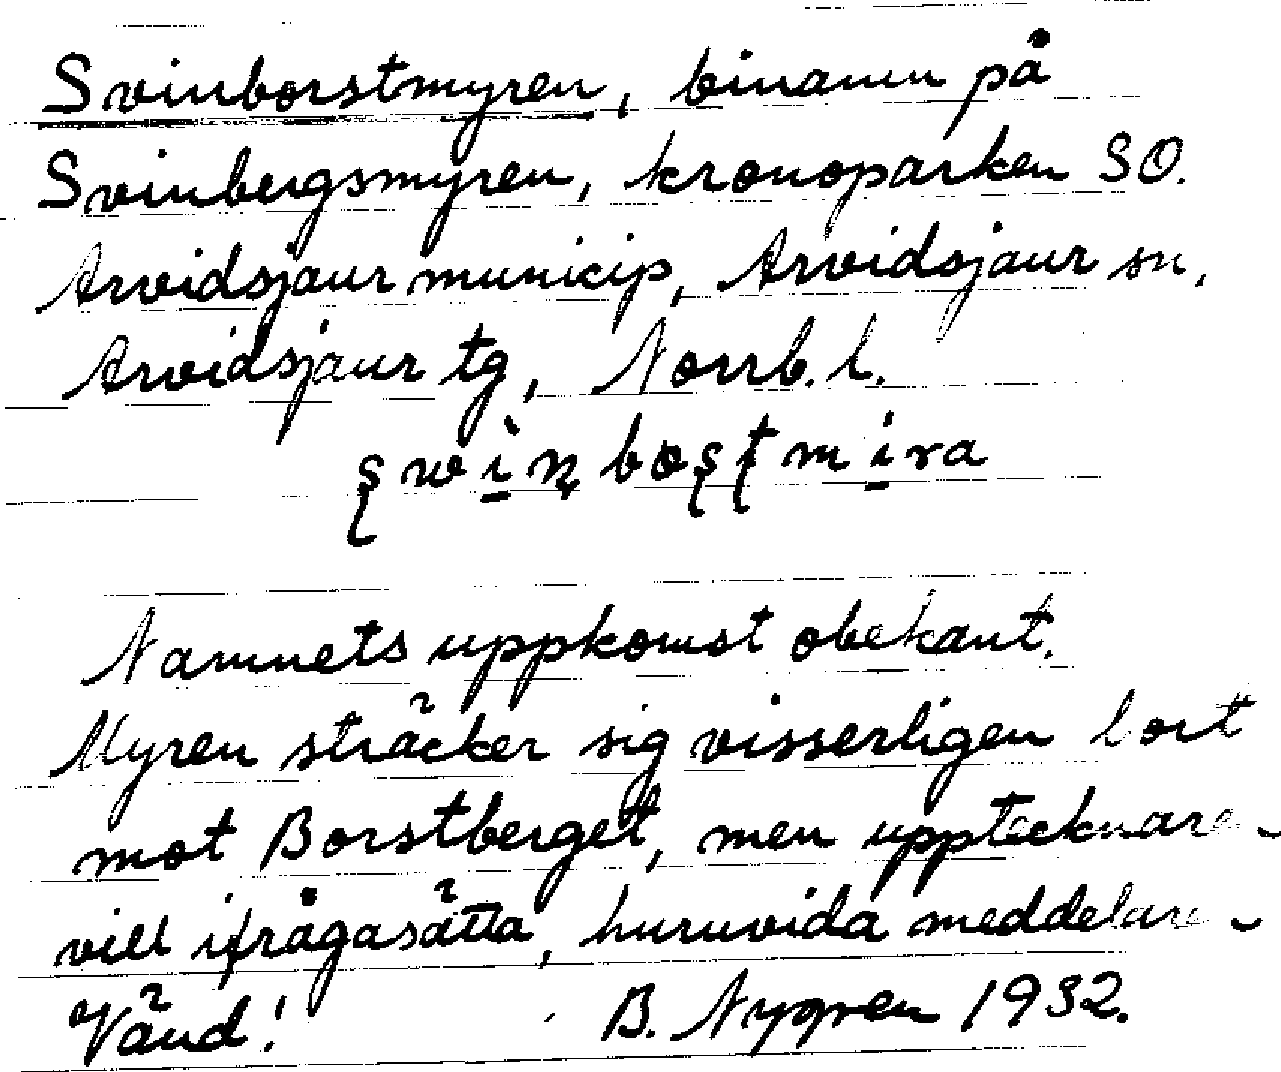 Svinborstmyren, binamn på
Svinbergsmyren, kronoparken SO.
Arvidsjaur municip, Arvidsjaur sn,
Arvidsjaur tg, Norrb. l.
Namnets uppkomst obekant.
Myren sträcker sig visserligen bort
mot Borstberget, men upptecknare-
vill ifrågasätta, huruvida meddelare-
Vänd! B. Nygren 1932.